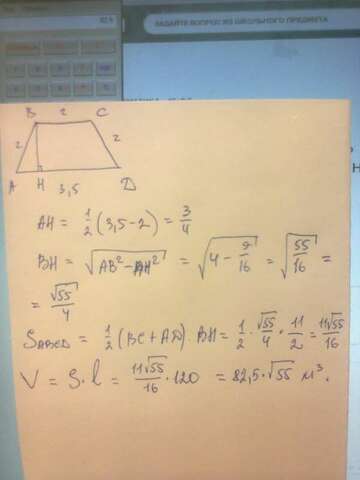 ЗАДАЙТЕ ВОПРОС ИЗ ШКОЛЬНОГО ПРЕДМЕТА
B 2 C
2 2
A H 3,5 D
AH = 1/2 (3,5-2) = 3/4
BH = √(AB² - AH²) = √(4 - 9/16) = √(55/16) =
= √55/4
S_ABCD = 1/2 (BC + AD) · BH = 1/2 · √55/4 · 11/2 = 11√55/16
V = S · l = 11√55/16 · 120 = 82,5 · √55 м³.